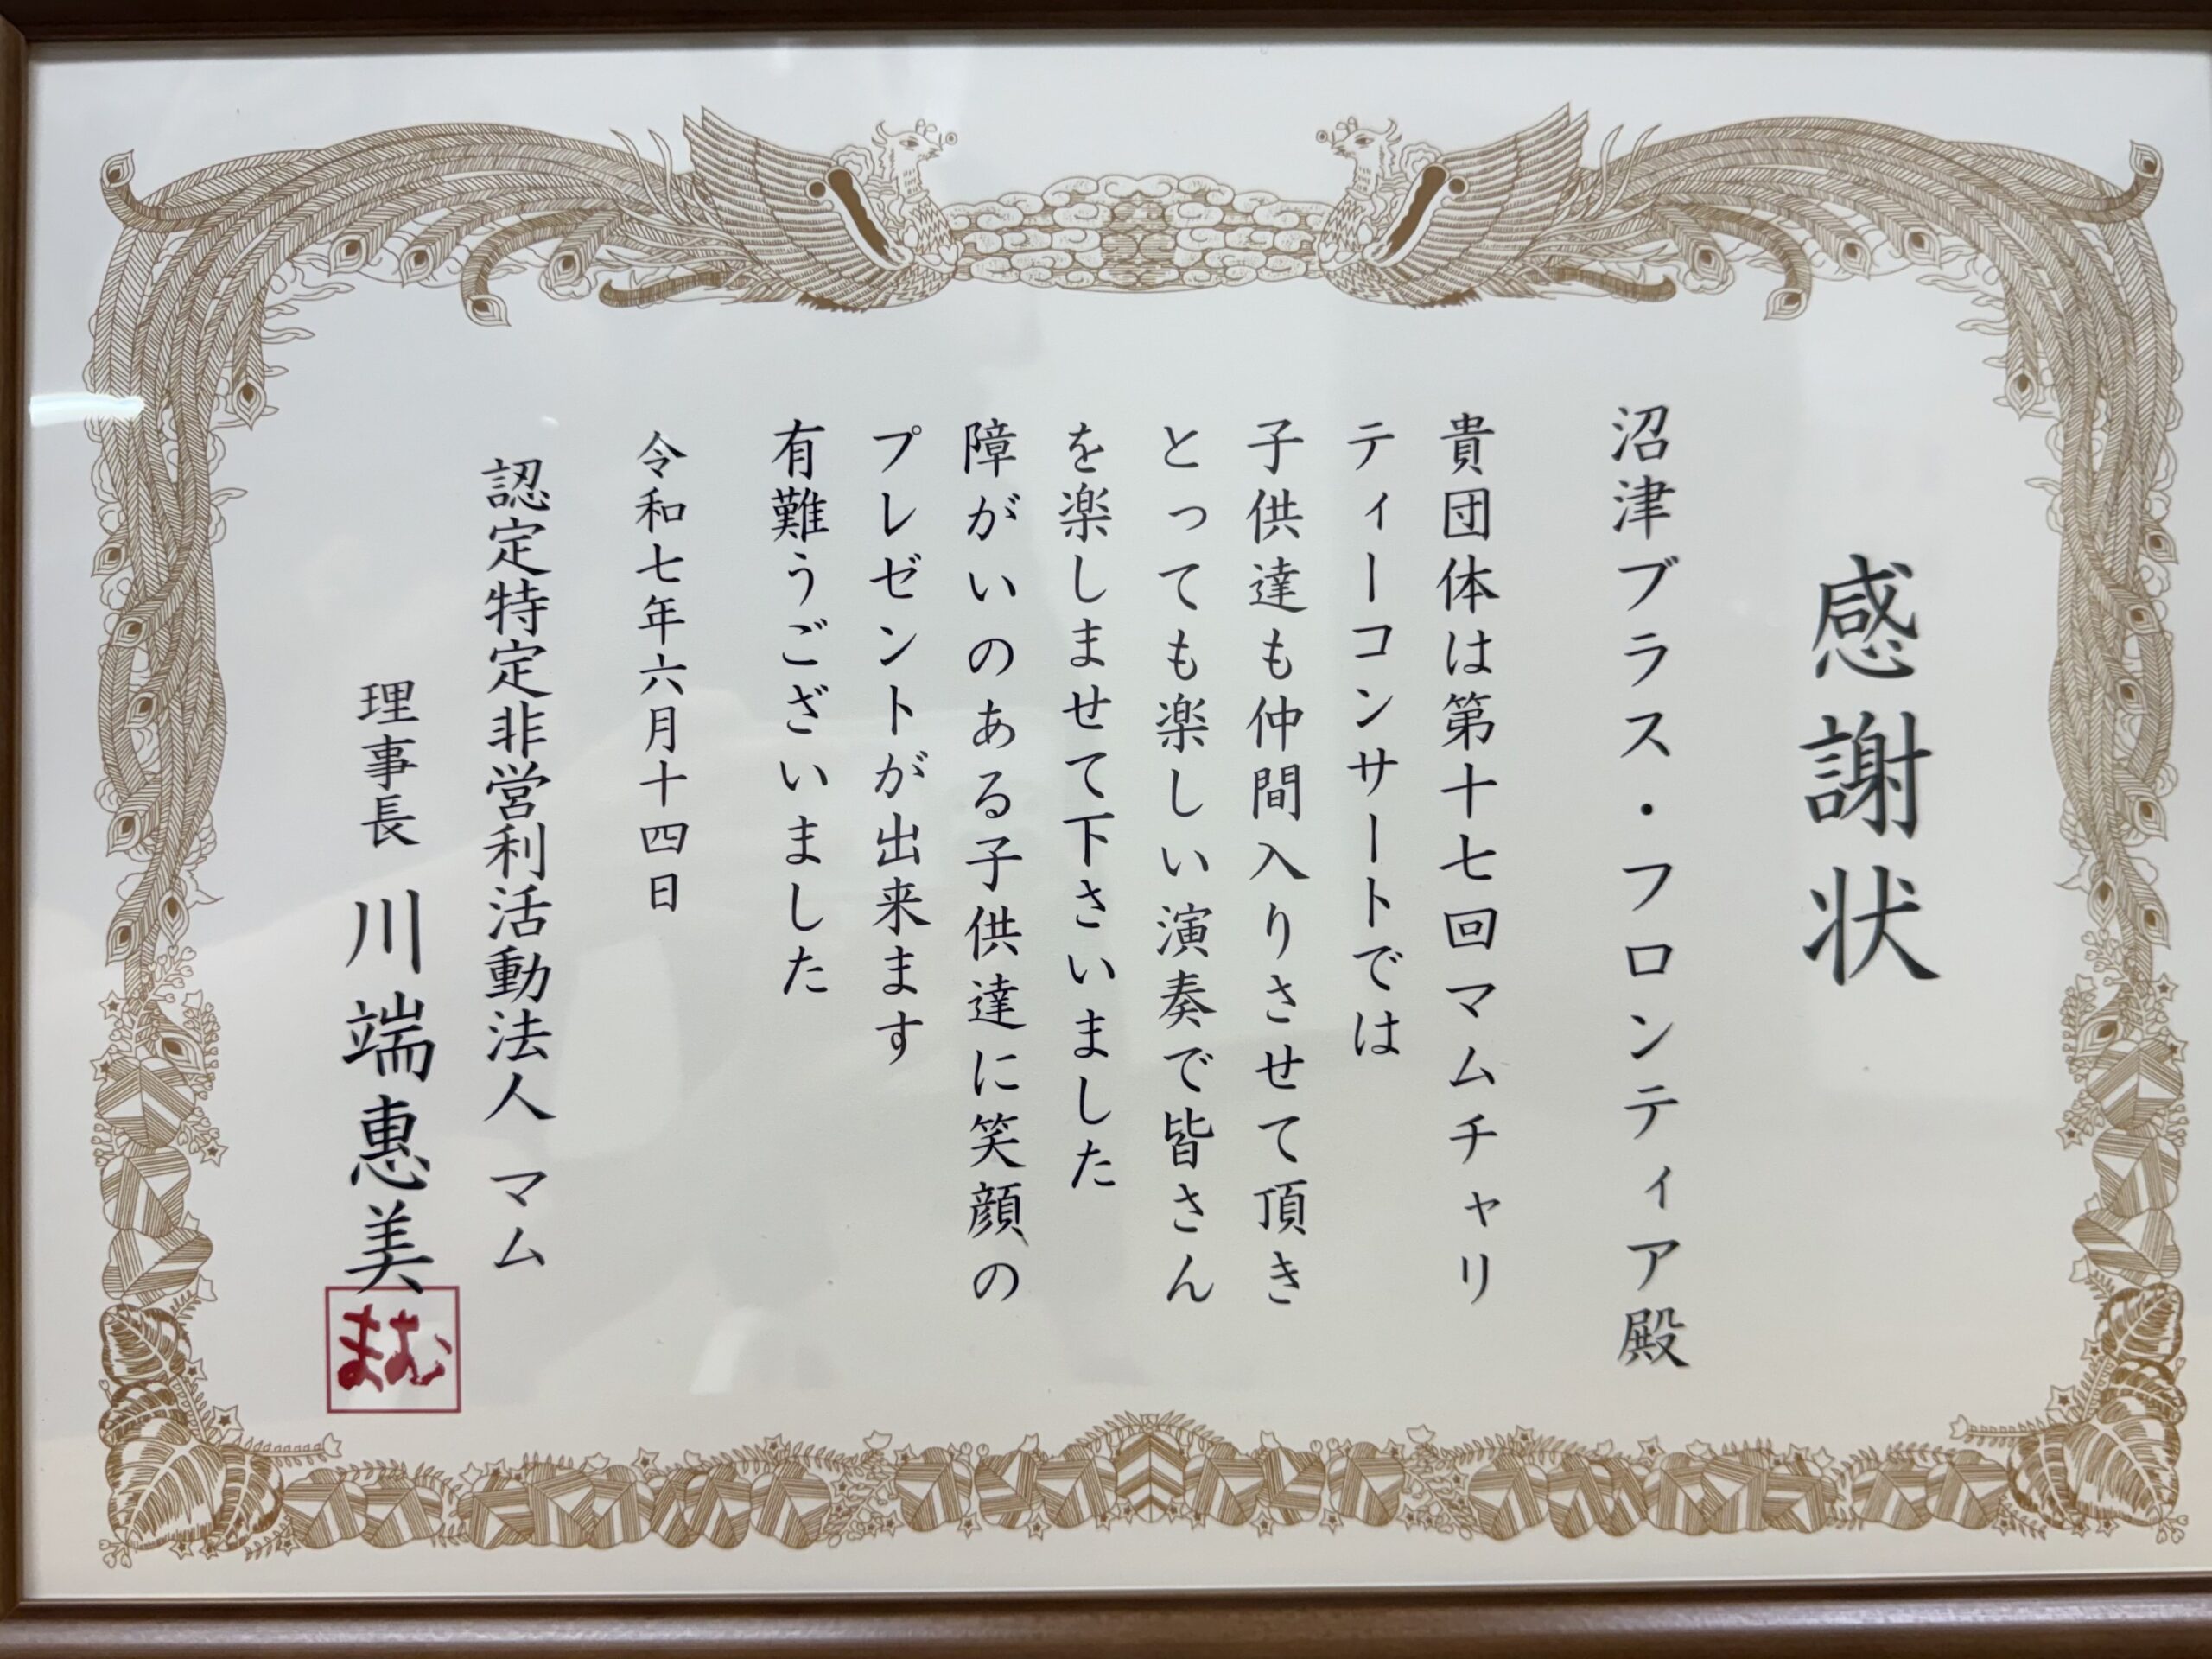 感謝状
沼津ブラス・フロンティア殿
貴団体は第十七回マムチャリ
ティーコンサートでは
子供達も仲間入りさせて頂き
とっても楽しい演奏で皆さん
を楽しませて下さいました
障がいのある子供達に笑顔の
プレゼントが出来ます
有難うございました
令和七年六月十四日
認定特定非営利活動法人 マム
理事長 川端恵美
まむ